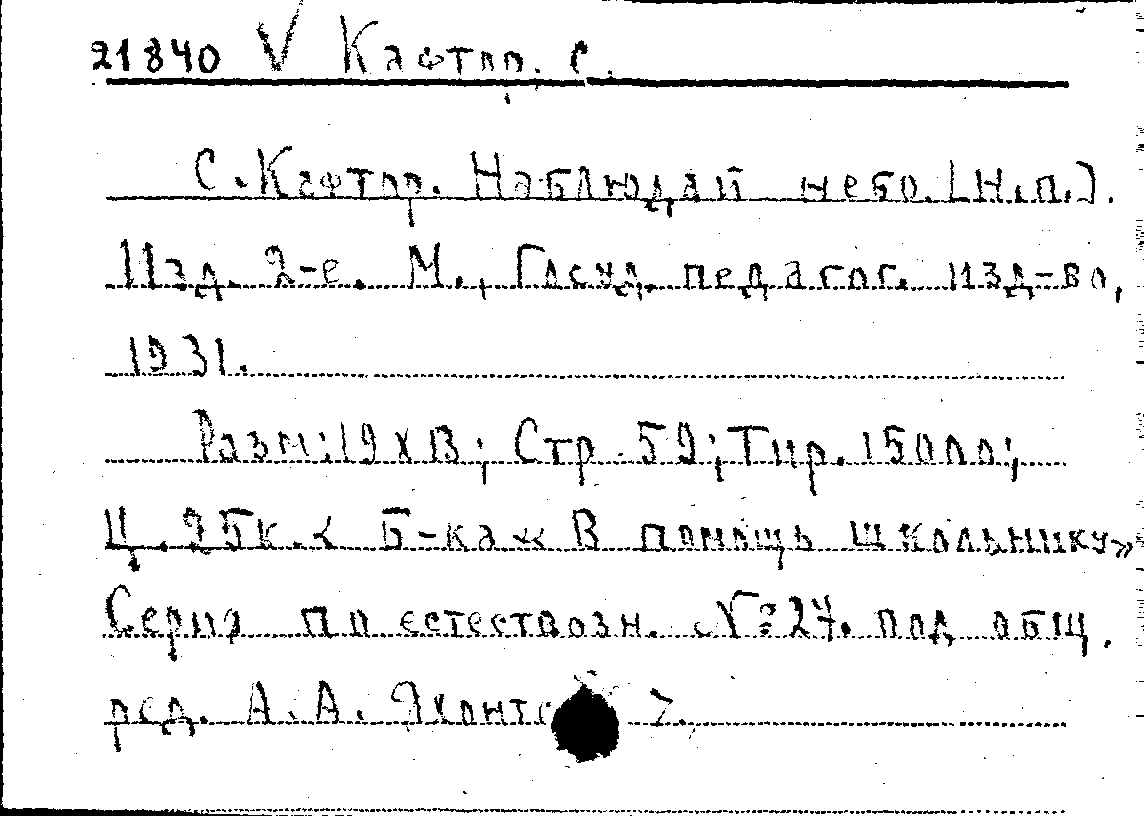 21840 V Кафтор. С.
С. Кафтор. Наблюдай небо. [Н.п.].
Изд. 2-е. М., Госуд. педагог. изд-во,
1931.
Разм: 19 х 13; Стр. 59; Тир. 15000;
Ц. 25к. < Б-ка « В помощь школьнику»
Серия по естествозн. № 27. под общ.
ред. А. А. >.